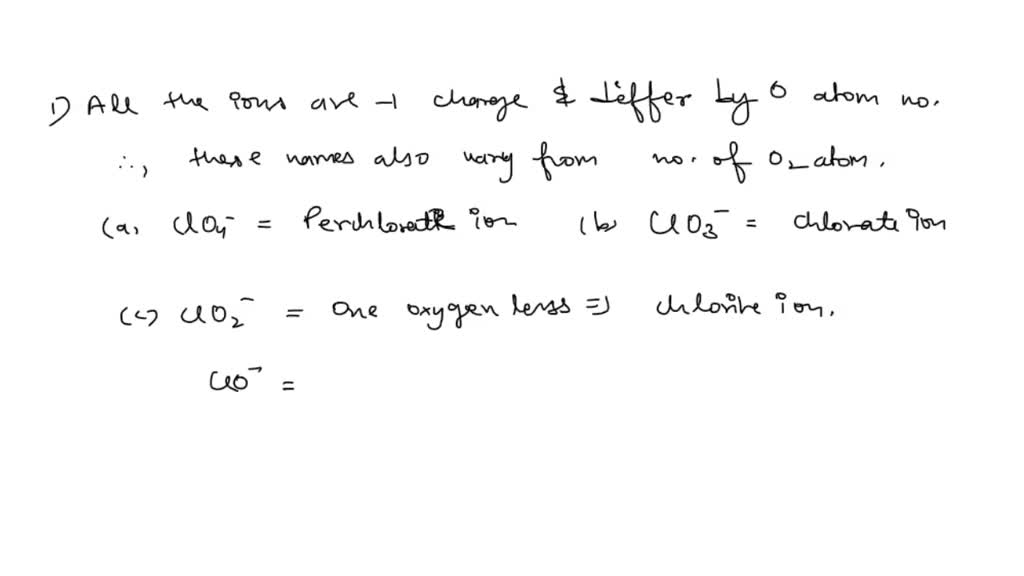 1) All the ions are -1 charge & differ by O atom no.
∴, these names also vary from no. of O₂ atom.
(a) ClO₄⁻ = Perchlorate ion (b) ClO₃⁻ = chlorate ion
(c) ClO₂⁻ = One oxygen less ⇒ chlorite ion.
ClO⁻ =